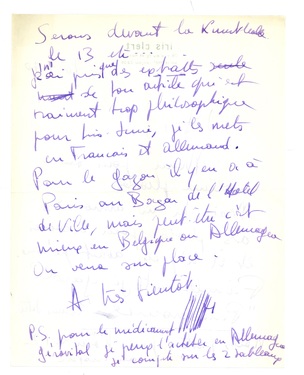 Serons devant la Kunsthalle
le 13 etc....
j'ai pris que des extraits
de ton article qui est
vraiment trop philosophique
pour Iris Time, je les mets
en Français et allemand.
Pour le gazon il y en a à
Paris au Bazar de l'Hotel
de Ville, mais peut être c'est
mieux en Belgique ou Allemagne
On verra sur place.
A très bientôt.
P.S. pour le médicament
gérovital si peux l'acheter en Allemagne
je compte sur les 2 tableaux
iris clert